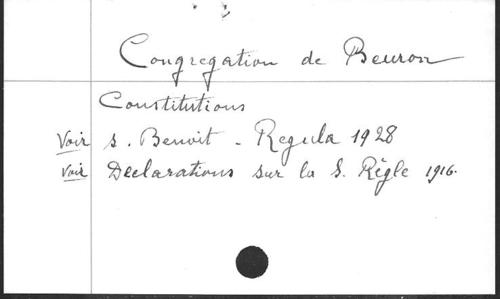 Congregation de Beuron
Constitutions
Voir s. Benoit - Regula 1928
Voir Declarations sur la S. Règle 1916.